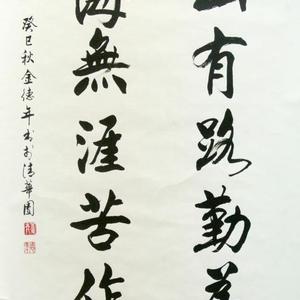 山有路勤为
海無涯苦作
癸巳秋金德年书於清華園